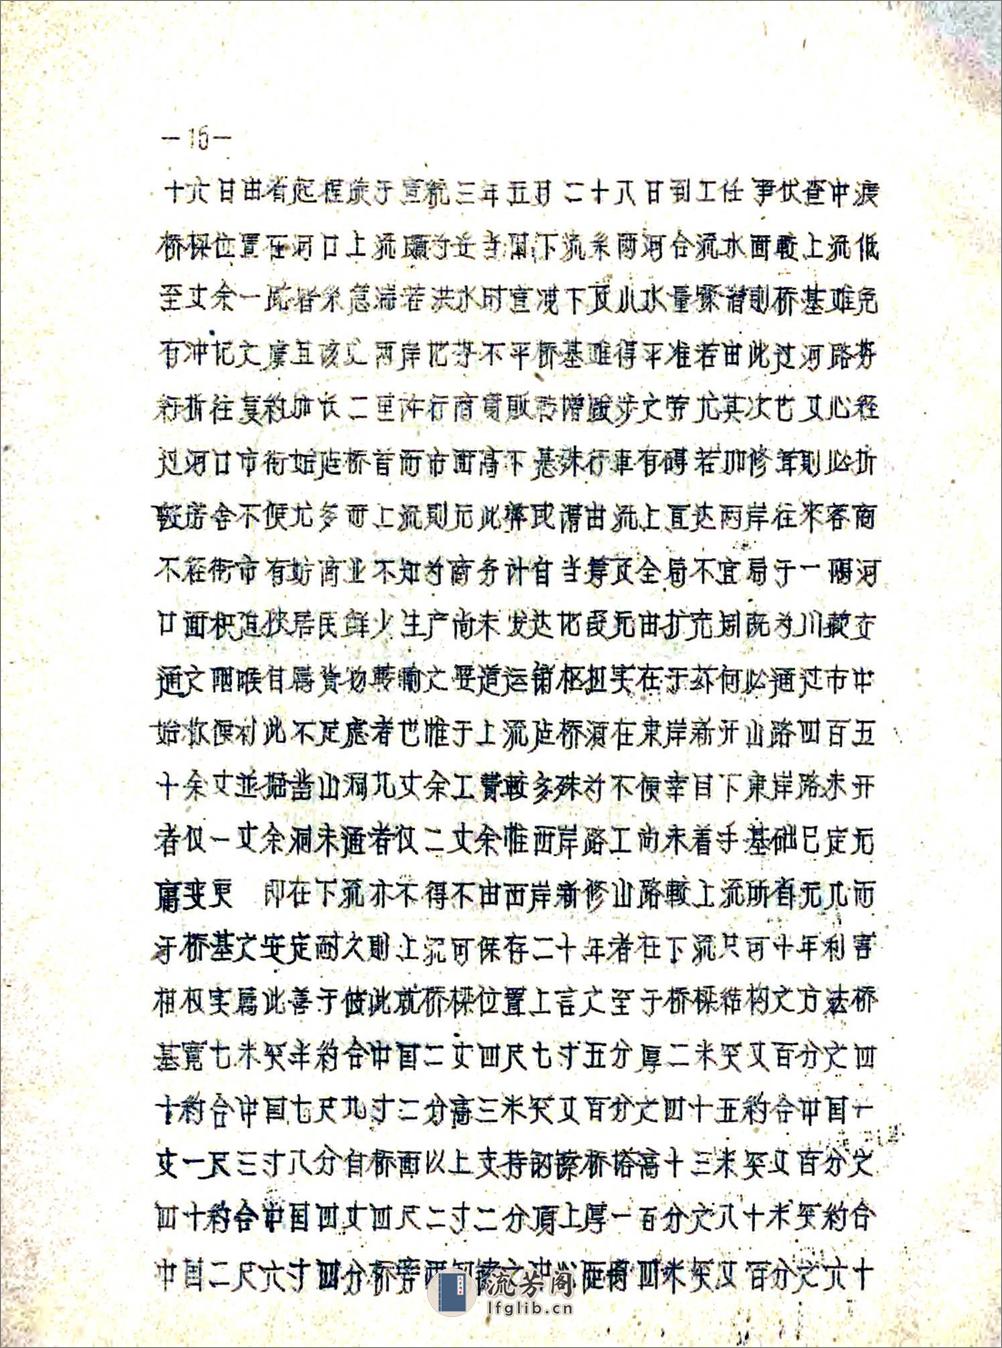 —16—
十六日由省起程旋于宣統三年五月二十八日到工任事伏查中渡
桥樑位置在河口上流頗为妥当因下流系两河合流水面較上流低
至丈余一路皆系急湍若洪水时直冲下及小水量聚潜則桥基难免
有冲圮之虞且該处两岸地势不平桥基难得平准若由此过河路劳
紆折往复約加长二里許行商貿販諸增跋步之劳尤其次也又必经
过河口市街始延桥首而市面高下悬殊行車有碍若加修葺則必折
毀房舍不便尤多而上流則无此弊或謂由流上直达两岸往来客商
不经街市有妨商业不知为商务計自当籌及全局不宜局于一隅河
口面积迫狹居民鮮少生产尚未发达地段无由扩充則既为川藏交
通之咽喉自屬貨物轉輸之要道运銷枢扭实在于茲何必通过市中
始称便利此不足慮者也惟于上流建桥須在東岸新开山路四百五
十余丈並掘凿山洞九丈余工費較多殊为不便幸目下東岸路未开
者仅一丈余洞未通者仅二丈余惟西岸路工尚未着手基础已定无
庸变更 即在下流亦不得不由西岸新修山路較上流所省无几而
于桥基之安定耐久則上流可保存二十年者在下流只可十年利害
相权实屬此善于彼此就桥樑位置上言之至于桥樑結构之方法桥
基寬七米突半約合中国二丈四尺七寸五分厚二米突又百分之四
十約合中国七尺九寸二分高三米突又百分之四十五約合中国一
丈一尺三寸八分自桥面以上支持鋼繚桥塔高十三米突又百分之
四十約合中国四丈四尺二寸二分頂上厚一百分之八十米突約合
中国二尺六寸四分桥旁两鋼繚之中心距得四米突又百分之六十
流芳阁
lfglib.cn